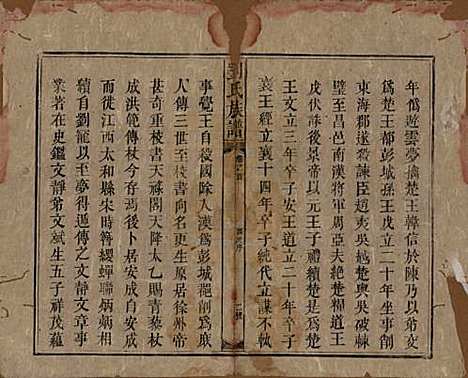 年偽遊雲夢擒楚王韓信於陳乃以弟交
為楚王都彭城孫王戊二十年坐事削
東海郡遂殺諫臣趙夷吳越楚與吳破棘
壁至昌邑南漢將軍周亞夫絶楚糧道王
戊伏辜後景帝以元王子禮續楚是為
王文立三年卒子安王道立二十年卒子
襄王經立襄十四年卒子統代立謀不執
劉氏族譜
事覺王自殺國除入漢為彭城郡削為庶
人傳三世至校書向名更生原居徐州帝
甚奇之校書天祿閣天降太乙賜青藜杖
成洪範傳杖今存焉後卜居安成自安成
而徙江西太和縣時簪纓蟬聯文物相
續自劉寵以至亭得通傳之文靜文章事
業著在史鑑文靜弟文斌生五子祥茂蘊